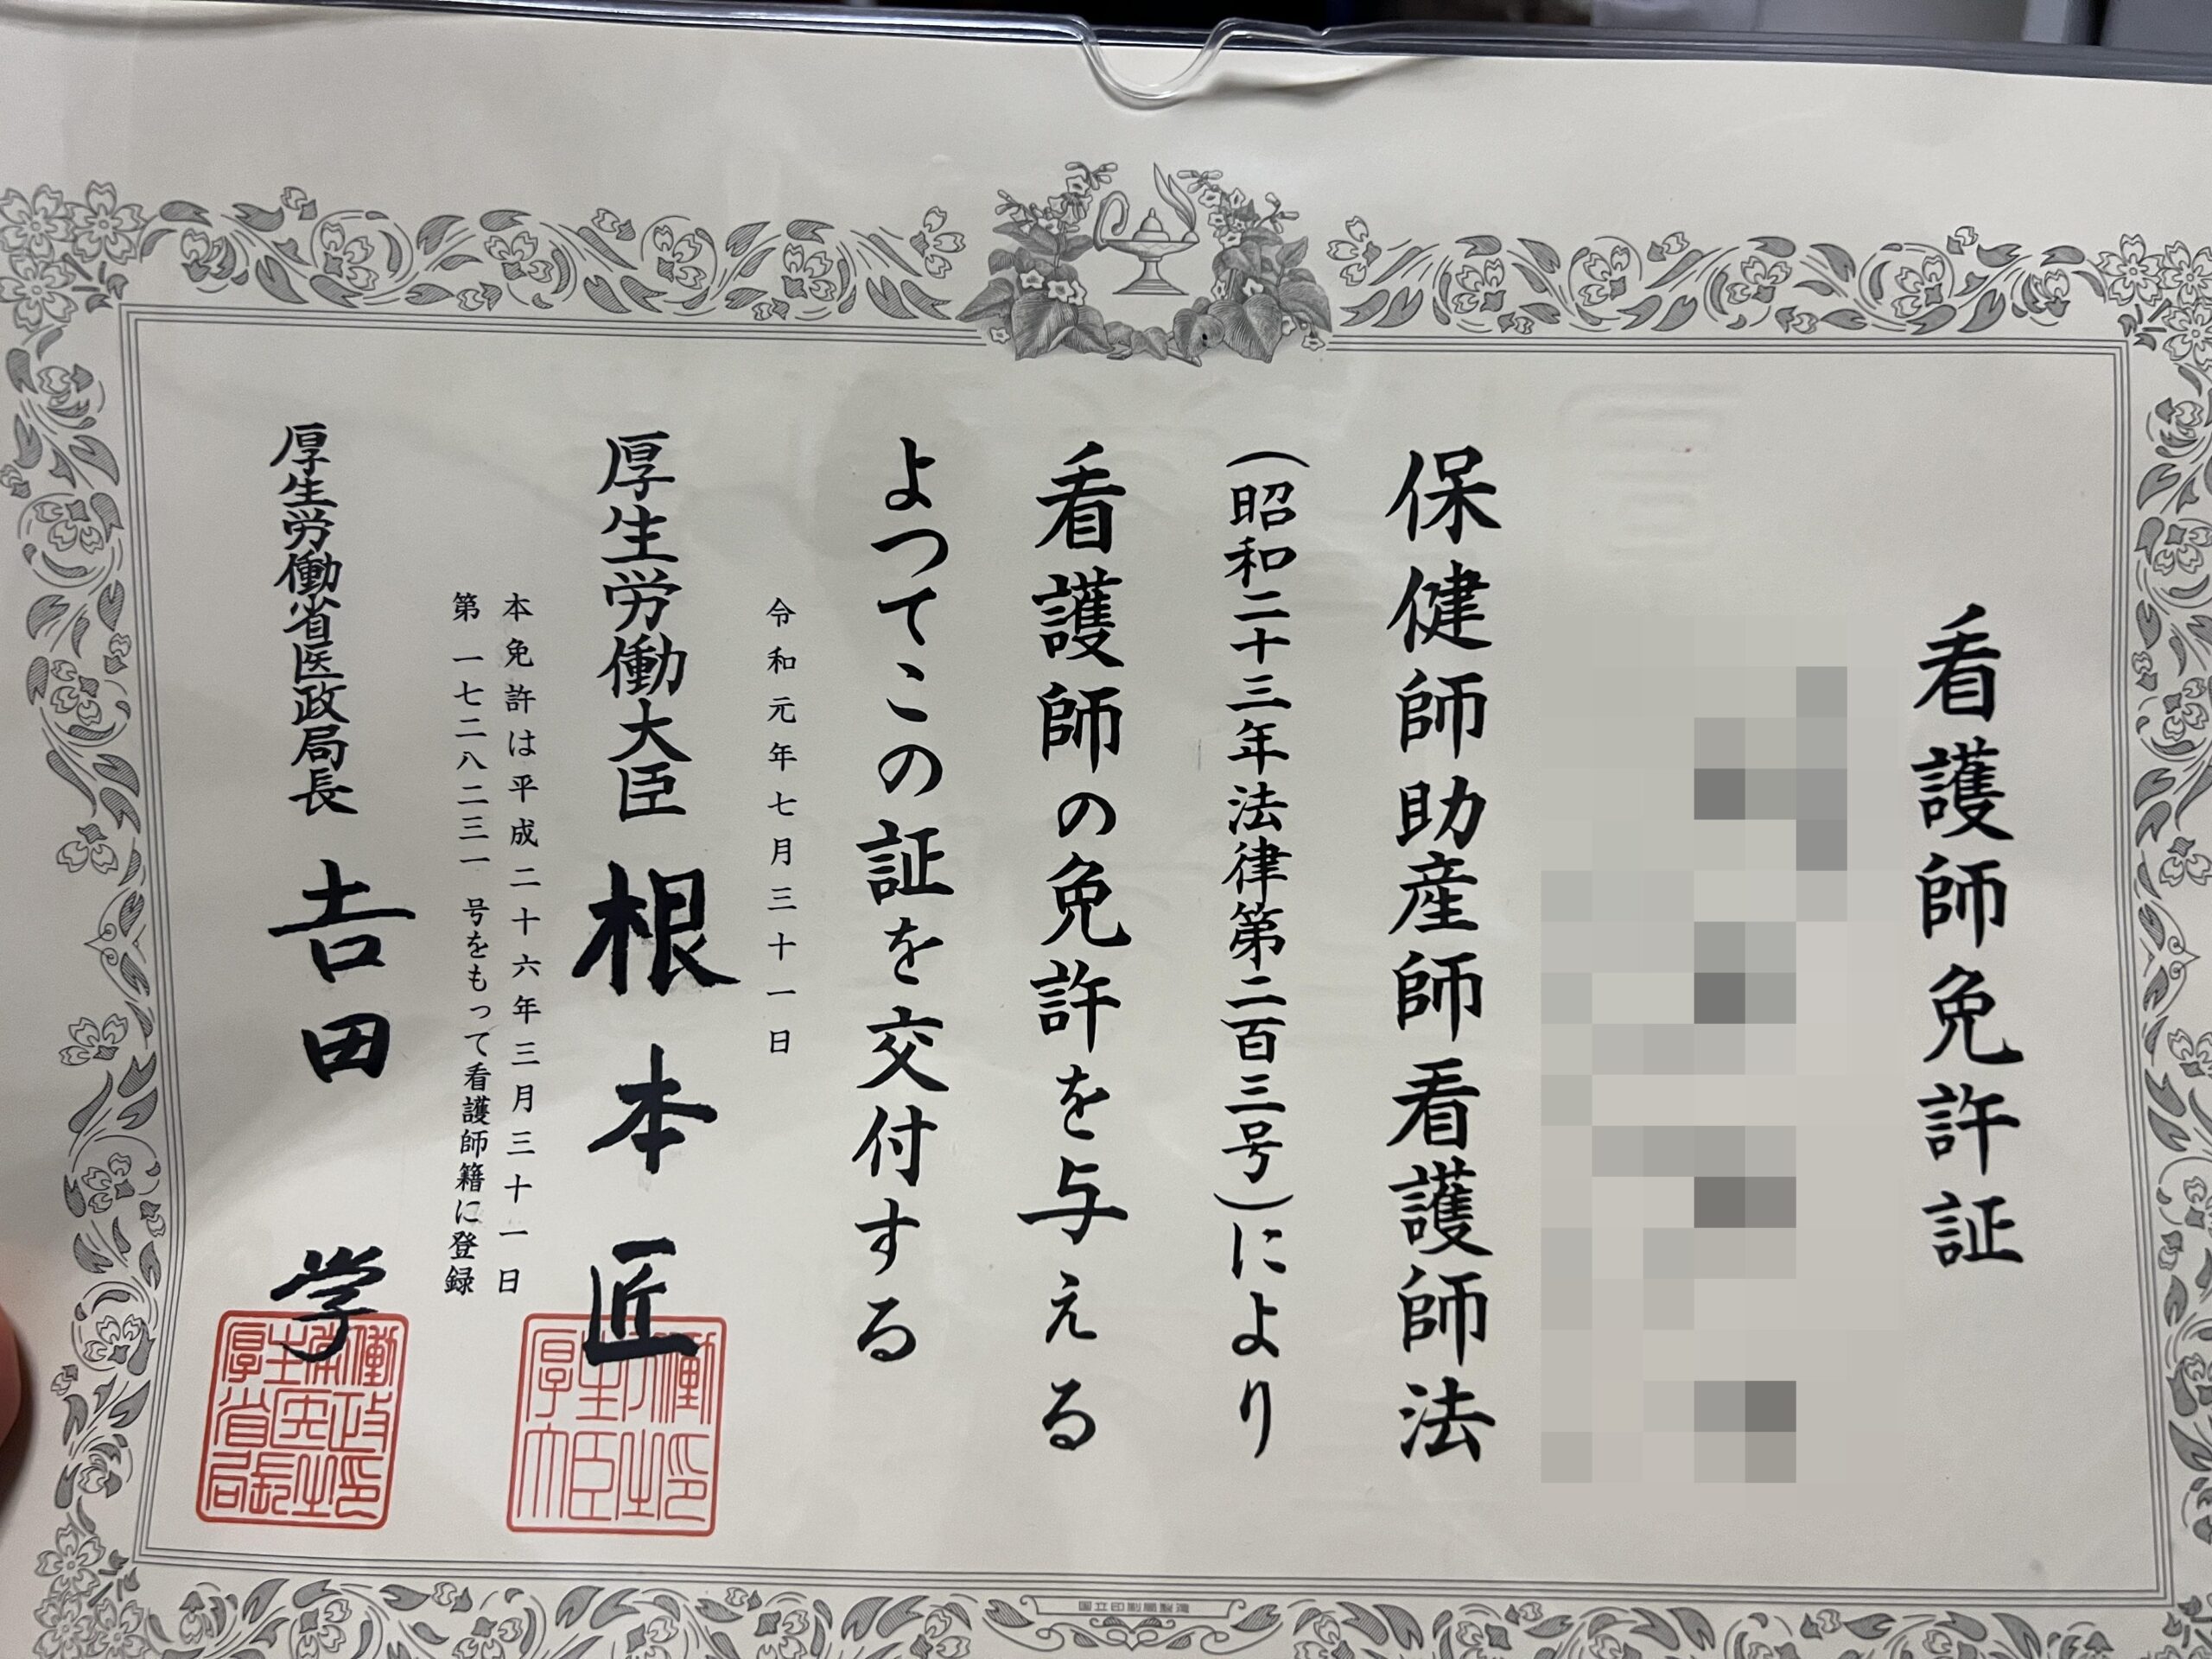 看護師免許証
保健師助産師看護師法
（昭和二十三年法律第二百三号）により
看護師の免許を与える
よつてこの証を交付する
令和元年七月三十一日
厚生労働大臣 根本匠
本免許は平成二十六年三月三十一日
第一七二八二三一号をもって看護師籍に登録
厚生労働省医政局長 吉田学
厚生労働大臣之印
厚生労働省医政局長之印
国立印刷局製造